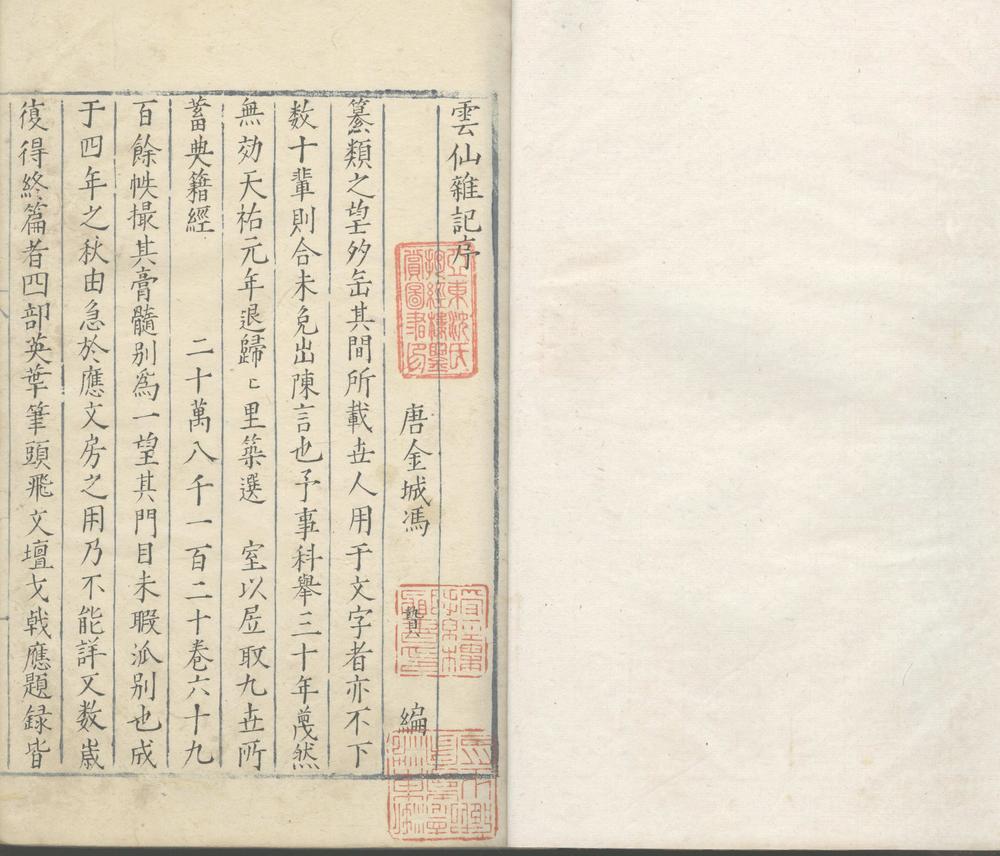 雲仙雜記序
唐金城馮贄編
纂類之望殆缶其間所載世人用于文字者亦不下
数十輩則合未免出陳言也予事科舉三十年蔑然
無効天祐元年退歸㠯里築選室以居取九世所
蓄典籍經二十萬八千一百二十卷六十九
百餘帙撮其膏髓別為一望其門目未暇派別也成
于四年之秋由急於應文房之用乃不能詳又数歲
復得終篇者四部英華筆頭飛文壇戈戟應題録皆